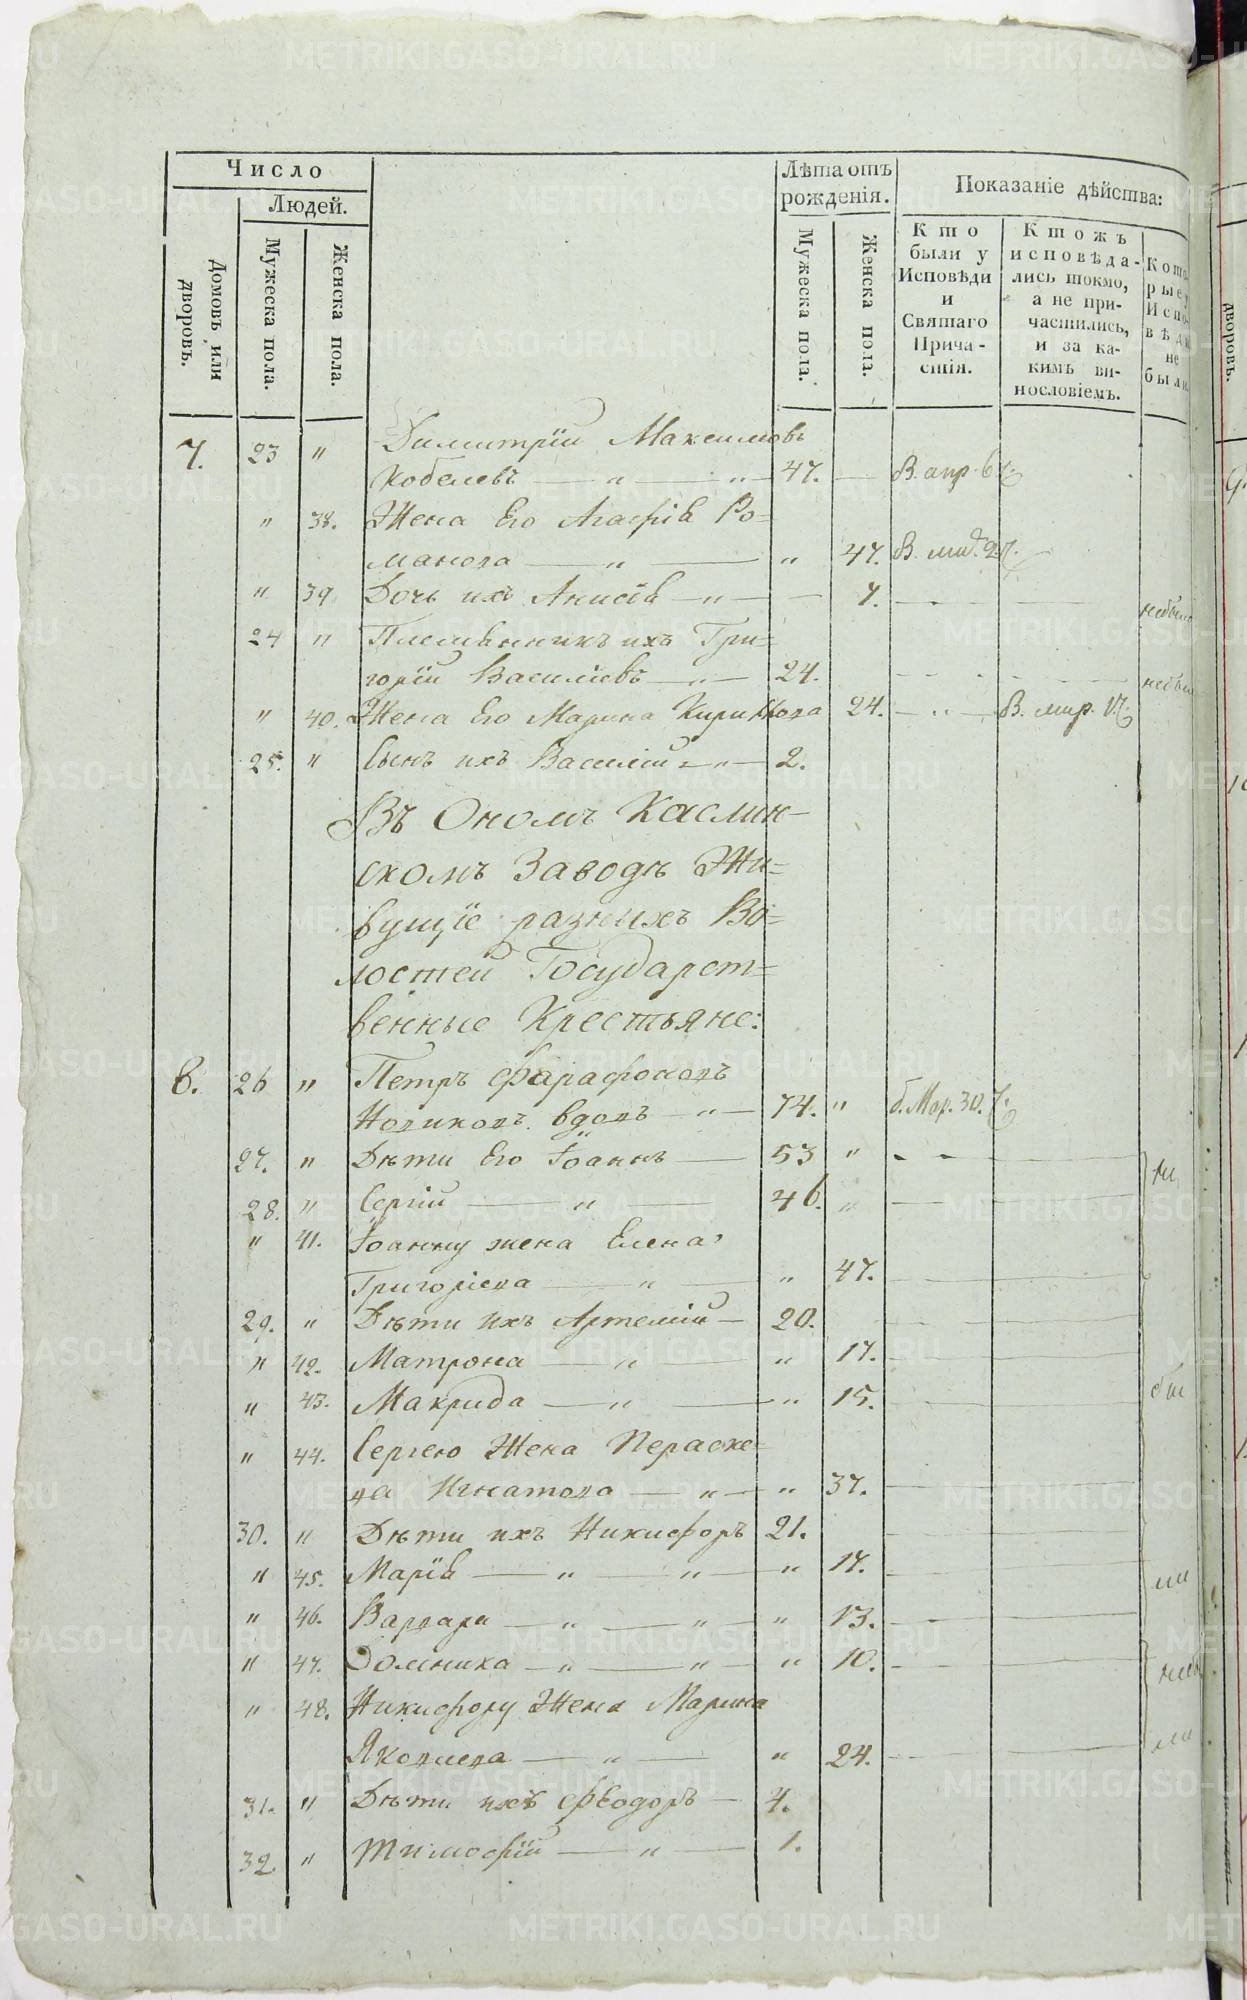 Число
Людей.
Домовъ или дворовъ.
Мужеска пола.
Женска пола.
Лѣта отъ рожденія.
Мужеска пола.
Женска пола.
Показаніе дѣйства:
Кто были у Исповѣди и Святаго Причастія.
Ктожъ исповѣдались токмо, а не причастились, и за какимъ винословіемъ.
7. 23 " Димитрїй Максимовъ
Кобелевъ — " — " — 47. — В. апр. 6
" 38. Жена Его Агафїѧ Ро=
манова — " — " 47. В.
" 39 Дочь ихъ Анисїѧ — " — — 7. небыла
24 " Племѧнникъ ихъ Гри=
горїй Василїевъ — " — 24. небы
" 40. Жена Его Марина Кирилова 24. — " —
25. " Сынъ ихъ Василїй — " — 2.
Въ Ономъ Каслин-
скомъ Заводѣ Жи=
вущїе разныхъ Во=
лостей Государст=
венные Крестьяне:
8. 26 " Петръ Фарафоновъ
Новиковъ вдовъ — " — 74. " Мар. 30.
27. " Дѣти Его Іоаннъ — 53 "
28. " Сергїй — " — 46. "
" 41. Іоанну жена Елена
Григорїева — " — " 47.
29. " Дѣти ихъ Артемїй — 20.
" 42. Матрона — " — " 17.
" 43. Макрида — " — " 15.
" 44. Сергею Жена Параске=
ва Игнатова — " — " 37.
30. " Дѣти ихъ Никифоръ 21.
" 45. Марїѧ — " — " — " 17.
" 46. Варвара — " — " — " 13.
" 47. Домника — " — " — " 10.
" 48. Никифору Жена Марина
Яковлева — " — " 24.
31. " Дѣти ихъ Феодоръ — 4.
32. " Тимофїй — " — 1.